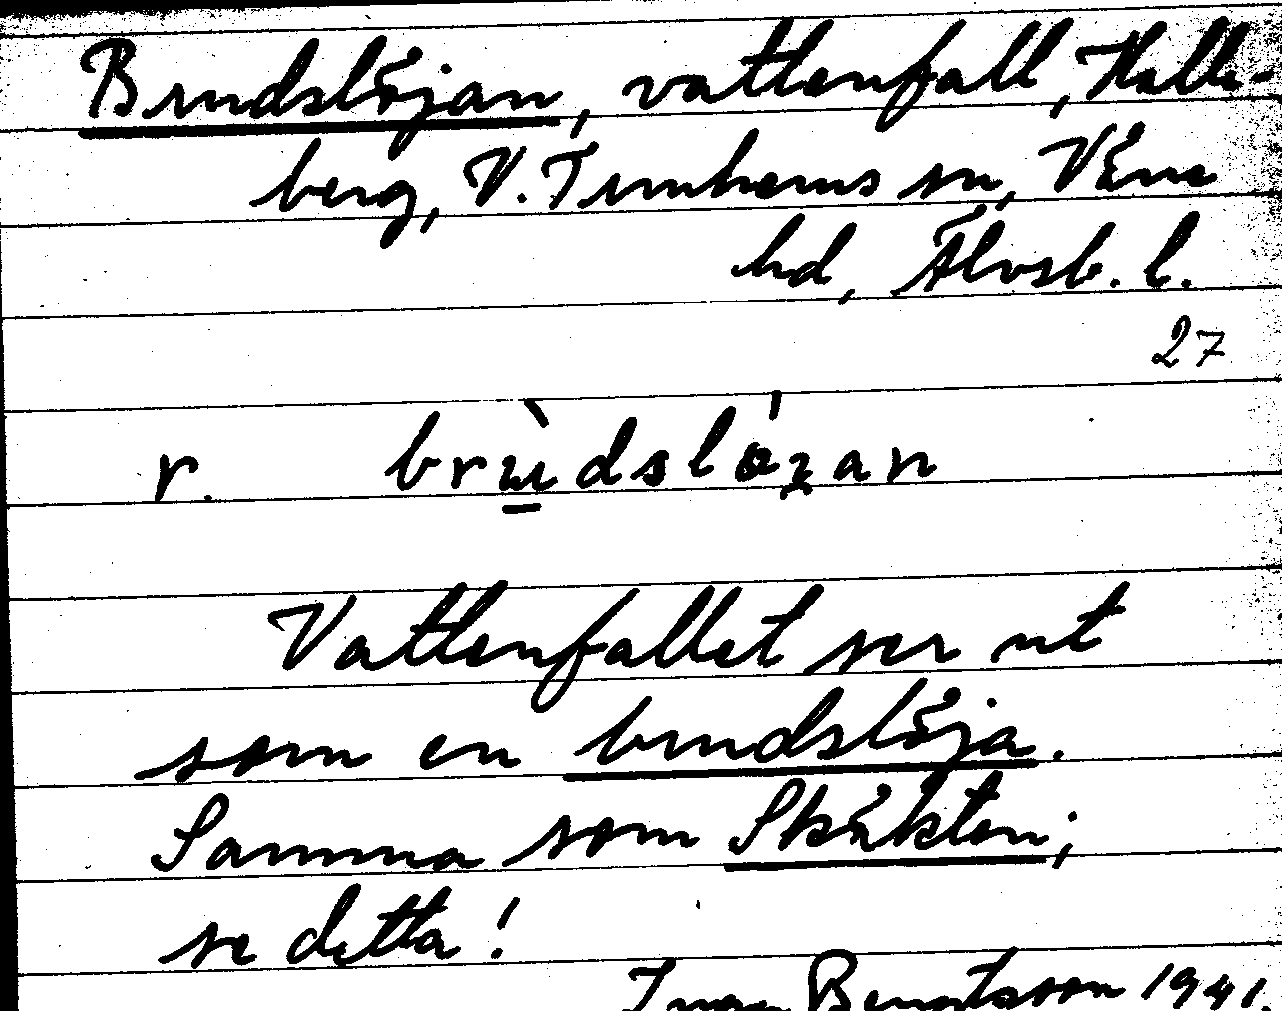 Brudslöjan, vattenfall, Halle-
berg, V. Tunhems sn, Väne
hd, Älvsb. l.
27
r. brù̱dsló̵ʒan
Vattenfallet ser ut
som en brudslöja.
Samma som Skäkten;
se detta!
Bengtsson 1941.